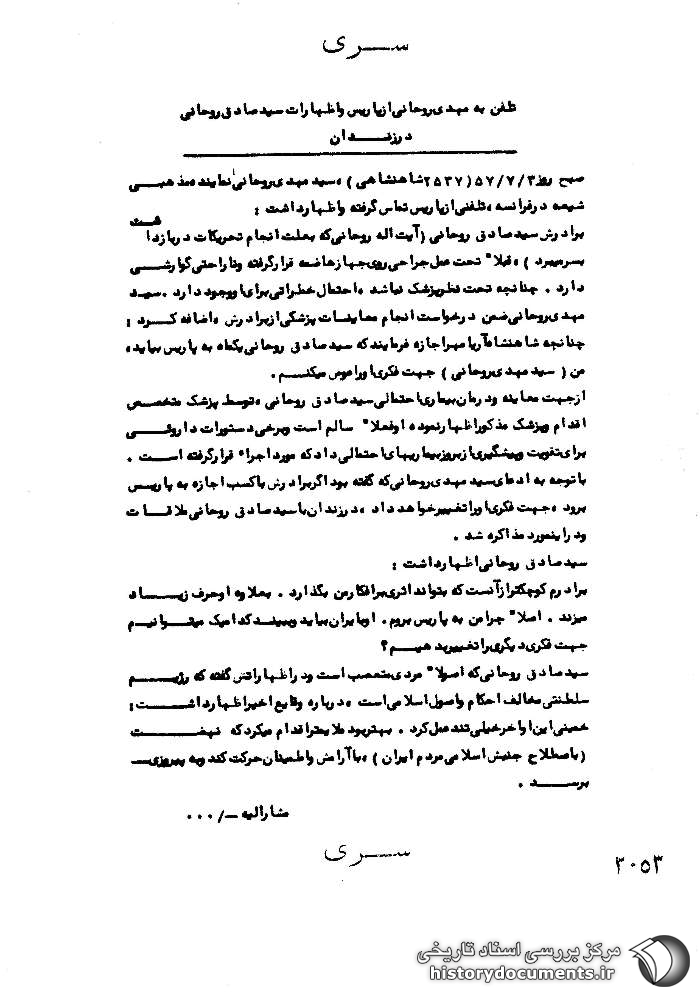 سری
تلفن به مهدی روحانی از پاریس و اظهارات سید صادق روحانی
در زندان
صبح روز ۵۷/۷/۳ (۲۵۳۷ شاهنشاهی) ، سید مهدی روحانی نماینده مذهبی
شیعه در فرانسه ، تلفنی از پاریس تماس گرفته و اظهار داشت :
برادرش سید صادق روحانی (آیت اله روحانی که بعلت انجام تحریکات در بازداشت
بسر میبرد) ، قبلا" تحت عمل جراحی روی جهاز هاضمه قرار گرفته و ناراحتی گوارشی
دارد . چنانچه تحت نظر پزشک نباشد ، احتمال خطراتی برای او وجود دارد . سید
مهدی روحانی ضمن درخواست انجام معاینات پزشکی از برادرش ، اضافه کرد :
چنانچه شاهنشاه آریامهر اجازه فرمایند که سید صادق روحانی یکماه به پاریس بیاید ،
من (سید مهدی روحانی) جهت فکری او را عوض میکنم .
از جهت معاینه و درمان بیماری احتمالی سید صادق روحانی ، توسط پزشک متخصص
اقدام و پزشک مذکور اظهار نموده ، او فعلا" سالم است و برخی دستورات داروئی
برای تقویت و پیشگیری از بروز بیماریهای احتمالی داد که مورد اجراء قرار گرفته است .
با توجه به ادعای سید مهدی روحانی که گفته بود اگر برادرش با کسب اجازه به پاریس
برود ، جهت فکری او را تغییر خواهد داد ، در زندان با سید صادق روحانی ملاقات
و در اینمورد مذاکره شد .
سید صادق روحانی اظهار داشت :
برادرم کوچکتر از آنست که بتواند اثری بر افکار من بگذارد . بعلاوه او حرف زیاد
میزند . اصلا" چرا من به پاریس بروم . او بایران بیاید و ببیند کدامیک میتوانیم
جهت فکری دیگری را تغییر دهیم ؟
سید صادق روحانی که اصولا" مردی متعصب است و در اظهاراتش گفته که رژیم
سلطنتی مخالف احکام و اصول اسلامی است ، درباره وقایع اخیر اظهار داشت :
خمینی این اواخر خیلی تند عمل کرد . بهتر بود ملایمتر اقدام میکرد که نهضت
(باصطلاح جنبش اسلامی مردم ایران) ، با آرامش و اطمینان حرکت کند و به پیروزی
برسد .
مشارالیه -/۰۰۰
سری
۲۰۵۳
مرکز بررسی اسناد تاریخی
historydocuments.ir